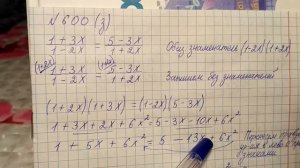 № 600 (з)
1 + 3x / 1 - 2x = 5 - 3x / 1 + 2x Общ знаменатель (1-2x)(1+2x)
(1+2x) 1 + 3x / 1 - 2x = (1-2x) 5 - 3x / 1 + 2x Запишем без знаменателей
(1+2x)(1+3x) = (1-2x)(5-3x)
1 + 3x + 2x + 6x² = 5 - 3x - 10x + 6x²
1 + 5x + 6x² = 5 - 13x + 6x²
в лево с
знаками